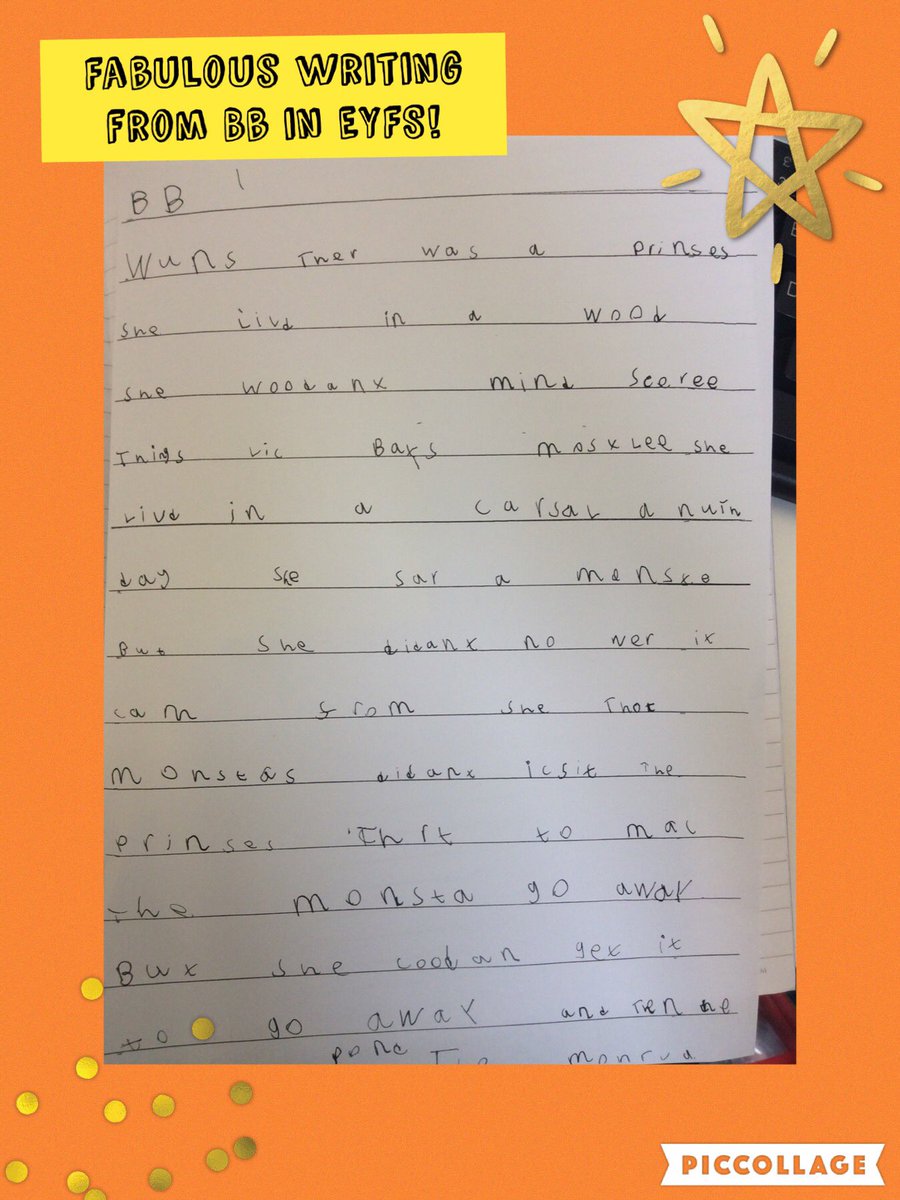 FABULOUS WRITING
FROM BB IN EYFS!
BB
Wuns Ther was a prinses
she livd in a wood
she woodant mind sceree
Things lic Bats mostlee she
livd in a carsal a nuin
day she sar a monste
But she didant no wer it
cam from she Thot
monstas didant icsit The
prinses Thrt to mac
the monsta go away
But she coodan get it
to go away and Ten
PICCOLLAGE